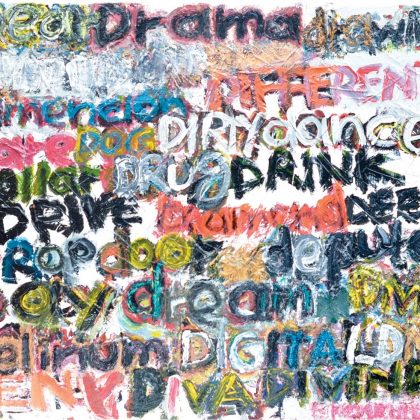 ear Drama drawin
DIFFERENT
mencion
are DOG DIRTYdance
ollar DRUG DRINK
DRIVE Diamond DEE
Rop door deput
eaky, dream DIV
elirium DIGITAL DI
ENY DIVA DIVINE